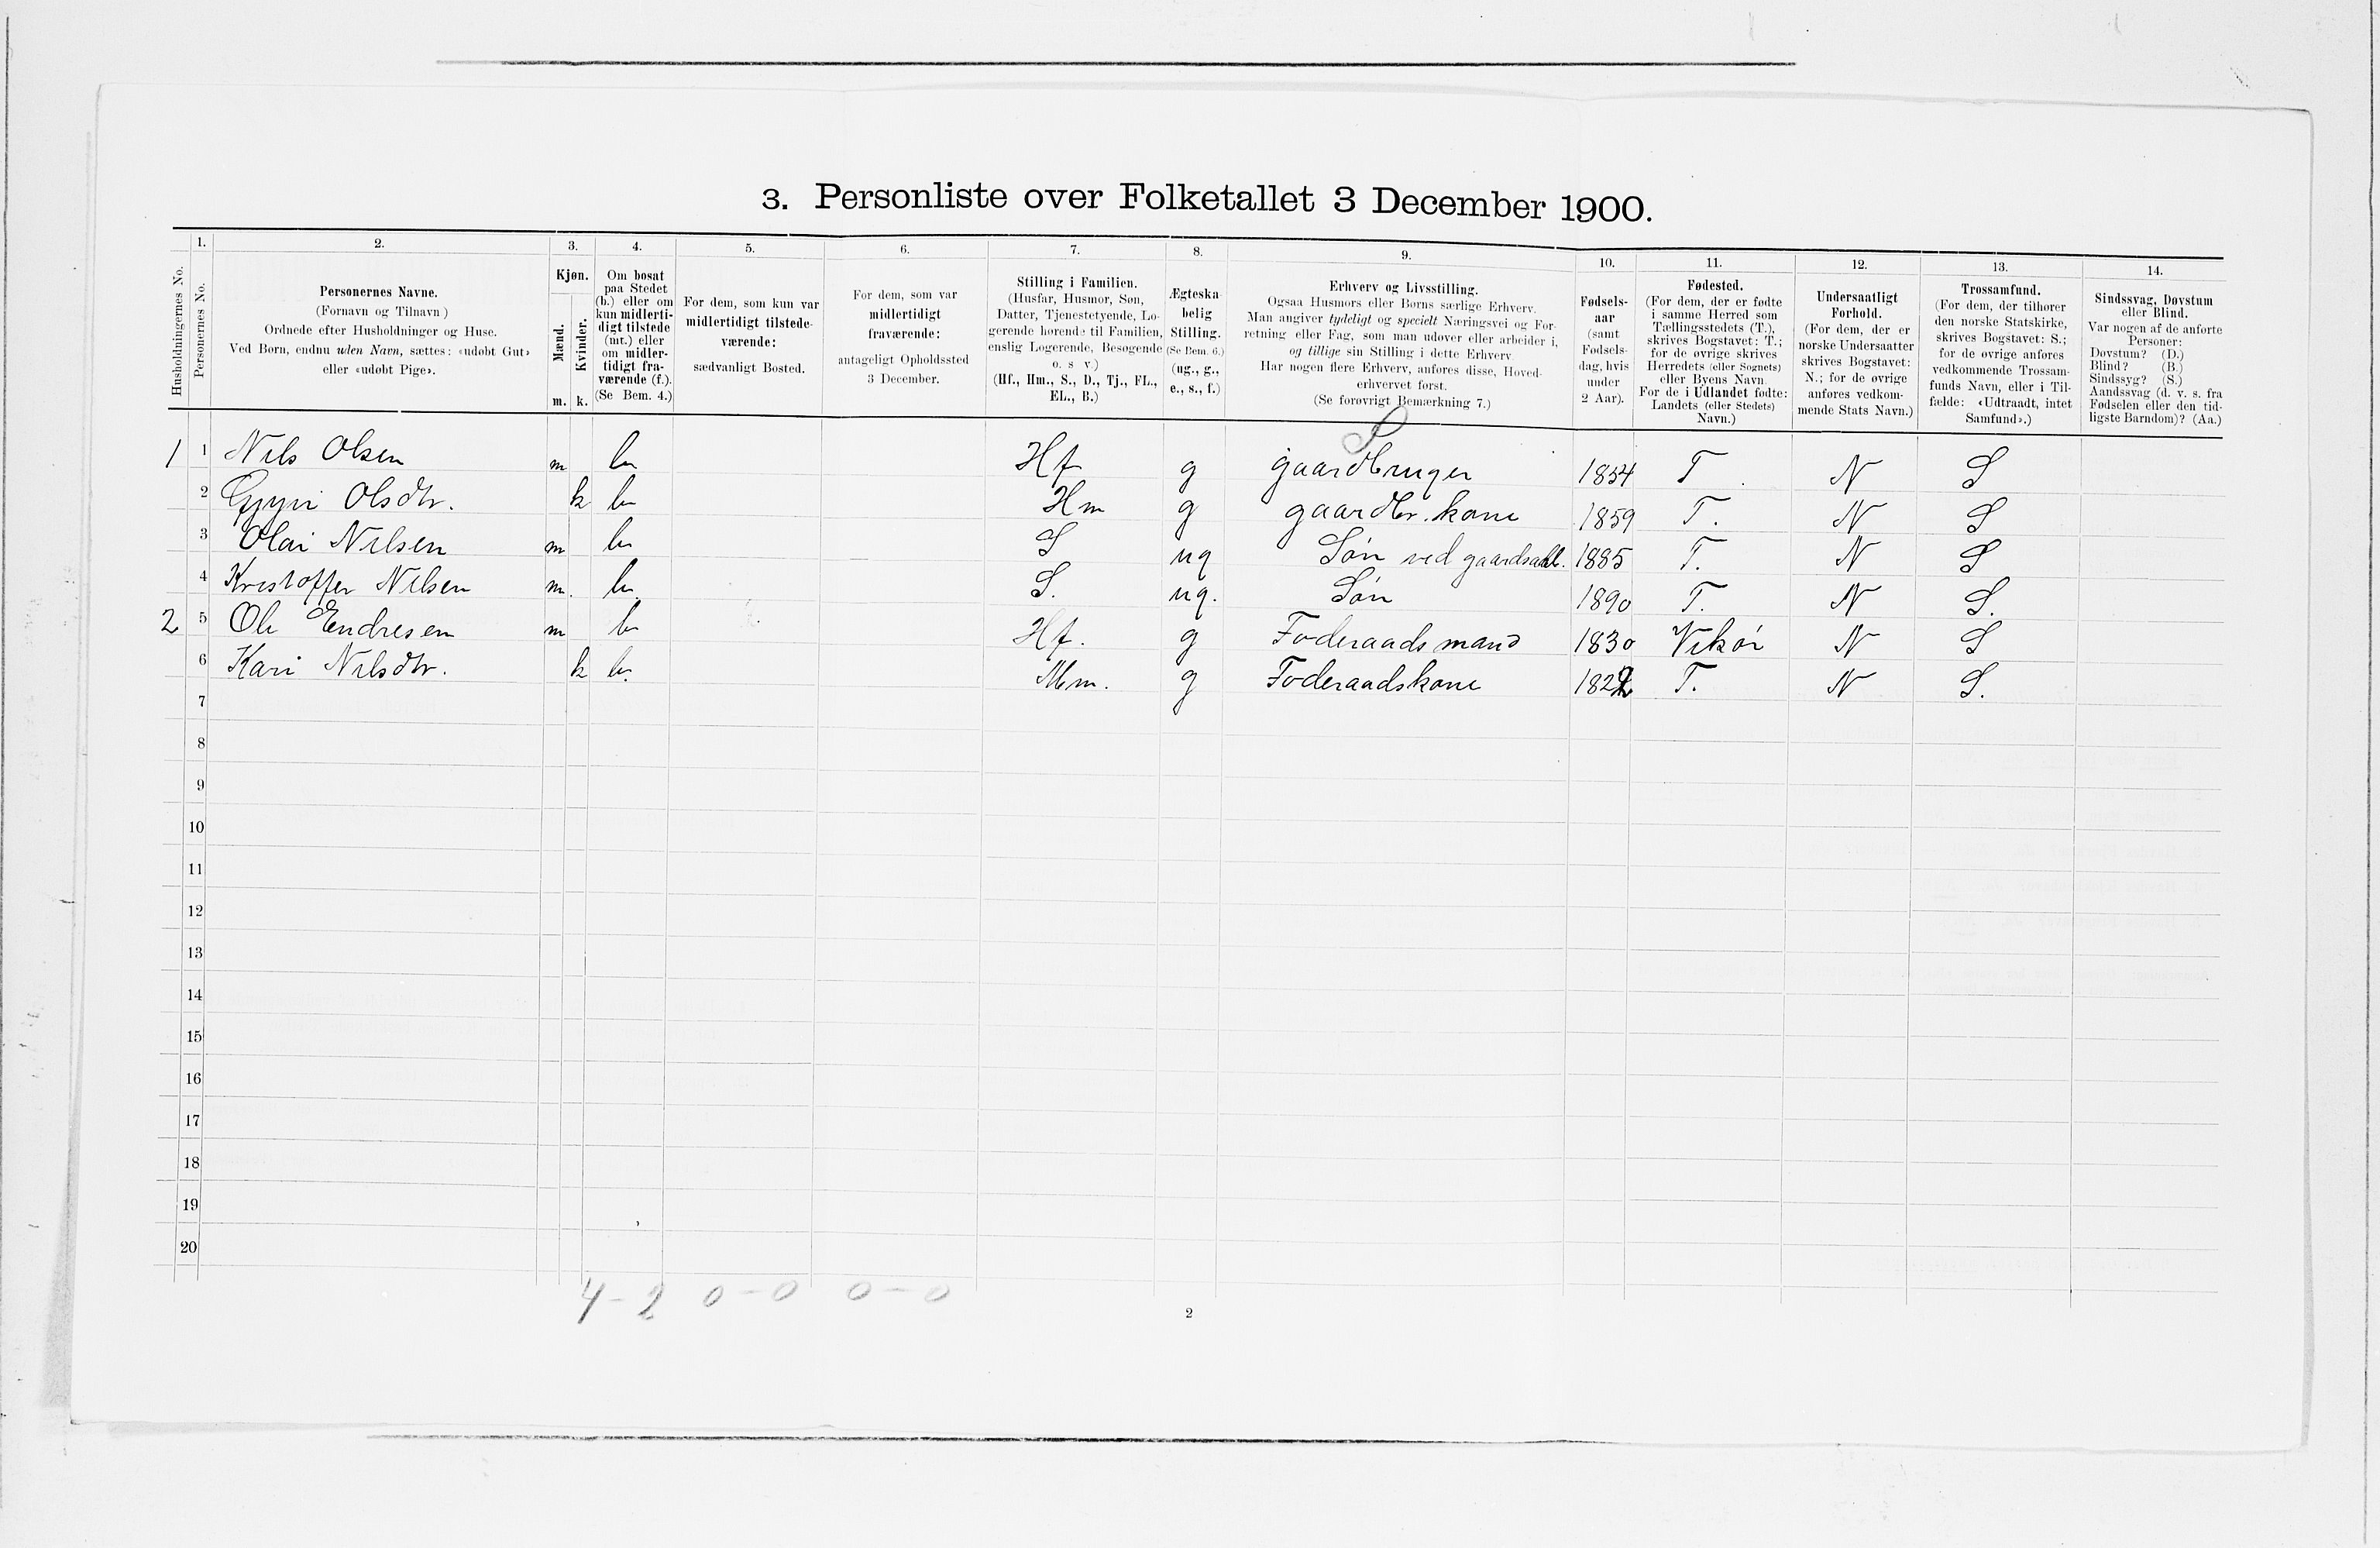 3. Personliste over Folketallet 3 December 1900.
Husholdningernes No.
1.
Personernes No.
2.
Personernes Navne.
(Fornavn og Tilnavn)
Ordnede efter Husholdninger og Huse.
Ved Børn, endnu uden Navn, sættes: «udøbt Gut»
eller «udøbt Pige».
3.
Kjøn.
Mænd.
Kvinder.
m. k.
4.
Om bosat
paa Stedet
(b.) eller om
kun midlerti-
digt tilstede
(mt.) eller
om midler-
tidigt fra-
værende (f.).
(Se Bem. 4.)
5.
For dem, som kun var
midlertidigt tilstede-
værende:
sædvanligt Bosted.
6.
For dem, som var
midlertidigt
fraværende:
antageligt Opholdssted
3 December.
7.
Stilling i Familien.
(Husfar, Husmor, Søn,
Datter, Tjenestetyende, Lo-
gerende hørende til Familien,
enslig Logerende, Besøgende
o. s. v.)
(Hf., Hm., S., D., Tj., FL.,
EL., B.)
8.
Ægteska-
belig
Stilling.
(Se Bem. 6.)
(ug., g.,
e., s., f.)
9.
Erhverv og Livsstilling.
Ogsaa Husmors eller Børns særlige Erhverv.
Man angiver tydeligt og specielt Næringsvei og For-
retning eller Fag, som man udøver eller arbeider i,
og tillige sin Stilling i dette Erhverv.
Har nogen flere Erhverv, anføres disse, Hoved-
erhvervet først.
(Se forøvrigt Bemærkning 7.)
10.
Fødsels-
aar
(samt
Fødsels-
dag, hvis
under
2 Aar).
11.
Fødested.
(For dem, der er fødte
i samme Herred som
Tællingsstedets (T.),
skrives Bogstavet: T.;
for de øvrige skrives
Herredets (eller Sognets)
eller Byens Navn.
For de i Udlandet fødte:
Landets (eller Stedets)
Navn.)
12.
Undersaatligt
Forhold.
(For dem, der er
norske Undersaatter
skrives Bogstavet:
N.; for de øvrige
anføres vedkom-
mende Stats Navn.)
13.
Trossamfund.
(For dem, der tilhører
den norske Statskirke,
skrives Bogstavet: S.;
for de øvrige anføres
vedkommende Trossam-
funds Navn, eller i Til-
fælde: «Udtraadt, intet
Samfund».)
14.
Sindssvag, Døvstum
eller Blind.
Var nogen af de anførte
Personer:
Døvstum? (D.)
Blind? (B.)
Sindssyg? (S.)
Aandssvag (d. v. s. fra
Fødselen eller den tid-
ligste Barndom)? (Aa.)
S
1 1 Nils Olsen m b Hf g gaardbruger 1854 T. N S
2 Gyri Olsdtr. k b Hm g gaardbr. kone 1859 T. N S
3 Olai Nilsen m b S ug Søn ved gaardsarb. 1885 T. N S
4 Kristoffer Nilsen m. b. S. ug. Søn 1890 T. N S.
2 5 Ole Endresen m b Hf. g Foderaadsmand 1830 Vikør N S
6 Kari Nilsdtr. k b. Hm. g Foderaadskone T. N S.
7
8
9
10
11
12
13
14
15
16
17
18
19
20
4 - 2 0 - 0 0 - 0
2